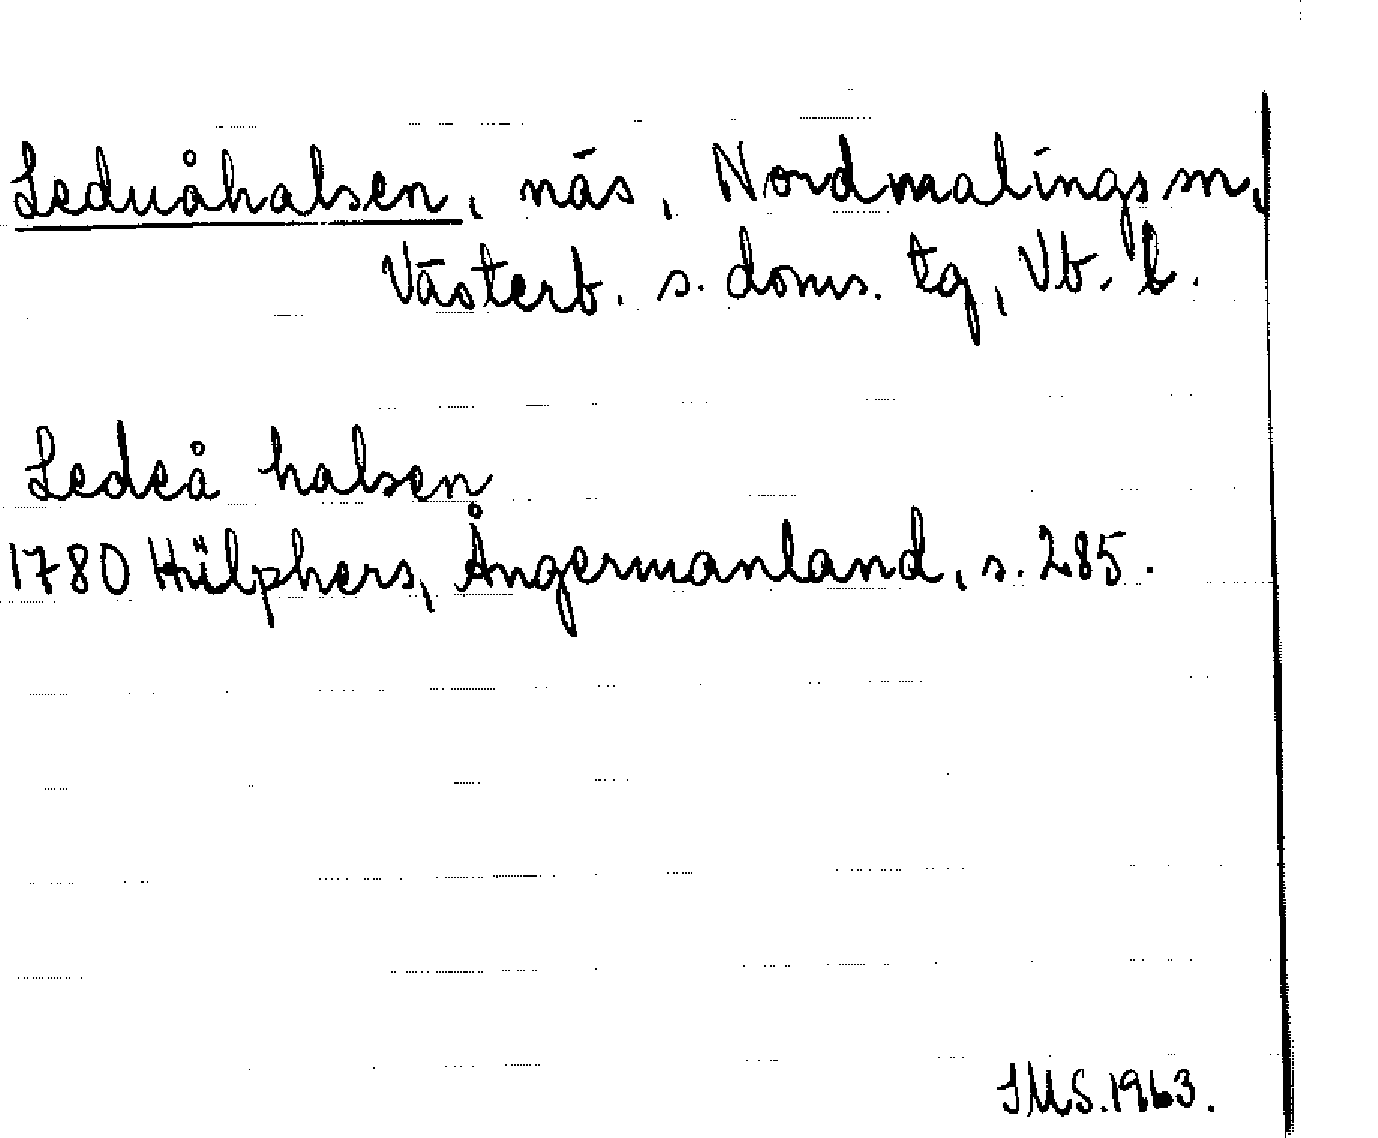 Leduåhalsen, näs, Nordmalings sn,
Västerb. s. doms. tg, Vb. l.
Ledeå halsen
1780 Hülphers, Ångermanland, s. 285.
IMS. 1963.